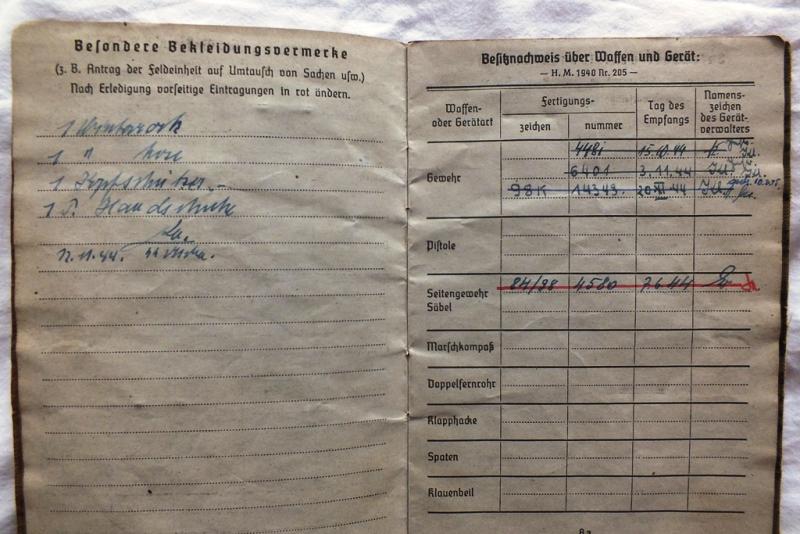 Besondere Bekleidungsvermerke
(z. B. Antrag der Feldeinheit auf Umtausch von Sachen usw.)
Nach Erledigung vorseitige Eintragungen in rot ändern.
1 Winterrock
1 " hose
1 Kopfschützer.-
1 P. Handschuhe
12.11.44.
Besitznachweis über Waffen und Gerät:
— H. M. 1940 Nr. 205 —
Waffen- oder Gerätart
Fertigungs-
zeichen
nummer
Tag des Empfangs
Namens-zeichen des Gerät-verwalters
Gewehr
448i 15.10.44
6401 3.11.44
98K 14343. 20.XI.44
Pistole
Seitengewehr 84/98 4580 7.6.44
Säbel
Marschkompaß
Doppelfernrohr
Klapphacke
Spaten
Klauenbeil